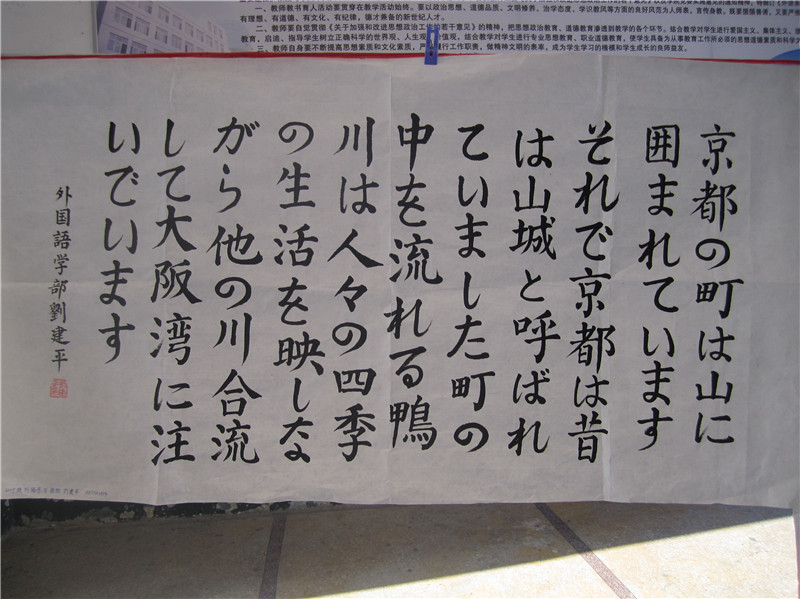 一、教师教书育人活动要贯穿在教学活动始终。要以政治思想、道德品质、文明修养、治学态度、学识教风等方面的良好风范为人师表,
有理想、有道德、有文化、有纪律,德才兼备的新世纪人才。
二、教师要自觉贯彻《关于加强和改进思想政治工作的若干意见》的精神,把思想政治教育、道德教育渗透到教学的各个环节。结合教学对学生进行爱国主义、集体主义、
教育,启迪、指导学生树立正确科学的世界观、人生观、价值观。结合教学对学生进行专业思想教育、职业道德教育,使学生具备为从事教育工作所必须的思想道德素质和科学
三、教师自身要不断提高思想素质和文化素质,严 行工作职责,做精神文明的表率,成为学生学习的楷模和学生成长的良师益友。
京都の町は山に
囲まれています
それで京都は昔
は山城と呼ばれ
ていました町の
中を流れる鴨
川は人々の四季
の生活を映しな
がら他の川合流
して大阪湾に注
いでいます
外国語学部劉建平